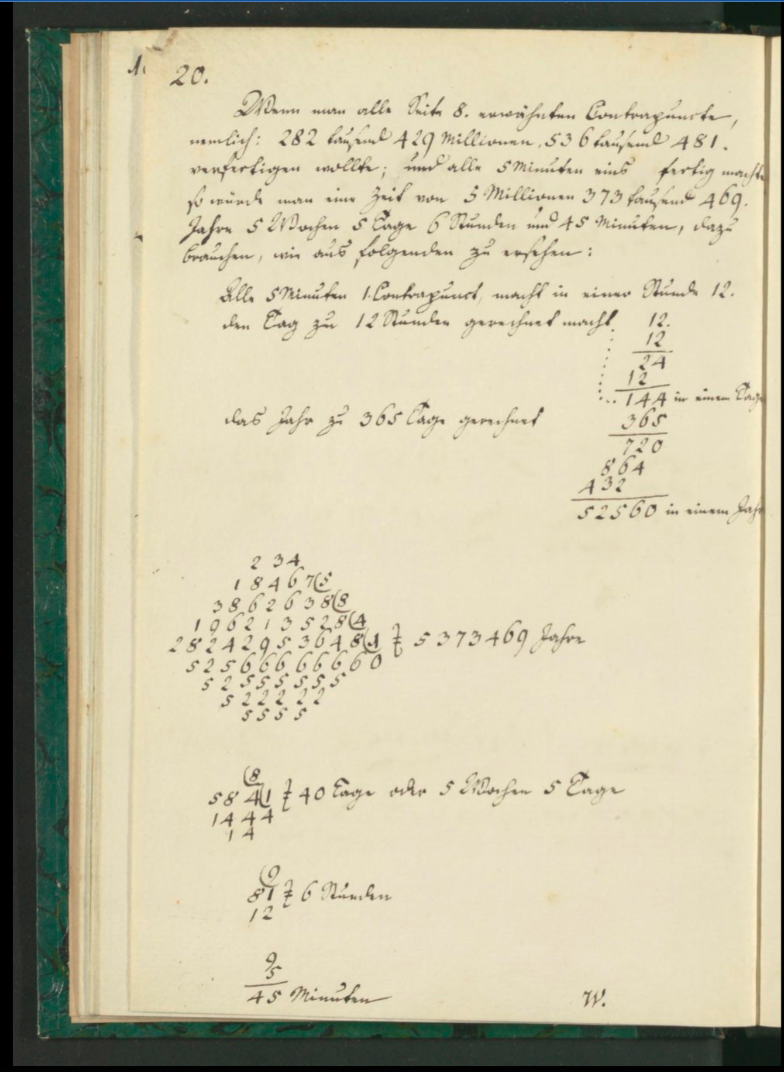 20.
Wenn man alle Seite 8. erwähnten Contrapuncte,
nemlich: 282 tausend 429 Millionen, 536 tausend 481.
verfertigen wollte; und alle 5 Minuten eins fertig macht
so würde man eine Zeit von 5 Millionen 373 tausend 469.
Jahre 5 Wochen 5 Tage 6 Stunden und 45 Minuten, dazu
brauchen, wie aus folgenden zu ersehen:
Alle 5 Minuten 1. Contrapunct, macht in einer Stunde 12.
den Tag zu 12 Stunden gerechnet macht 12.
12
24
12
144 in einem Tage
das Jahr zu 365 Tage gerechnet 365
720
864
432
52560 in einem Jahr
2 3 4
1 8 4 6 7 (5
3 8 6 2 6 3 8 (8
1 9 6 2 1 3 5 2 8 (4
2 8 2 4 2 9 5 3 6 4 8 (1 5373469 Jahre
5 2 5 6 6 6 6 6 6 6 0
5 2 5 5 5 5 5 5
5 2 2 2 2 2
5 5 5 5
(8
5 8 4 (1 40 Tage oder 5 Wochen 5 Tage
1 4 4 4
1 4
(9
8 1 6 Stunden
1 2
9
5
45 Minuten
W.